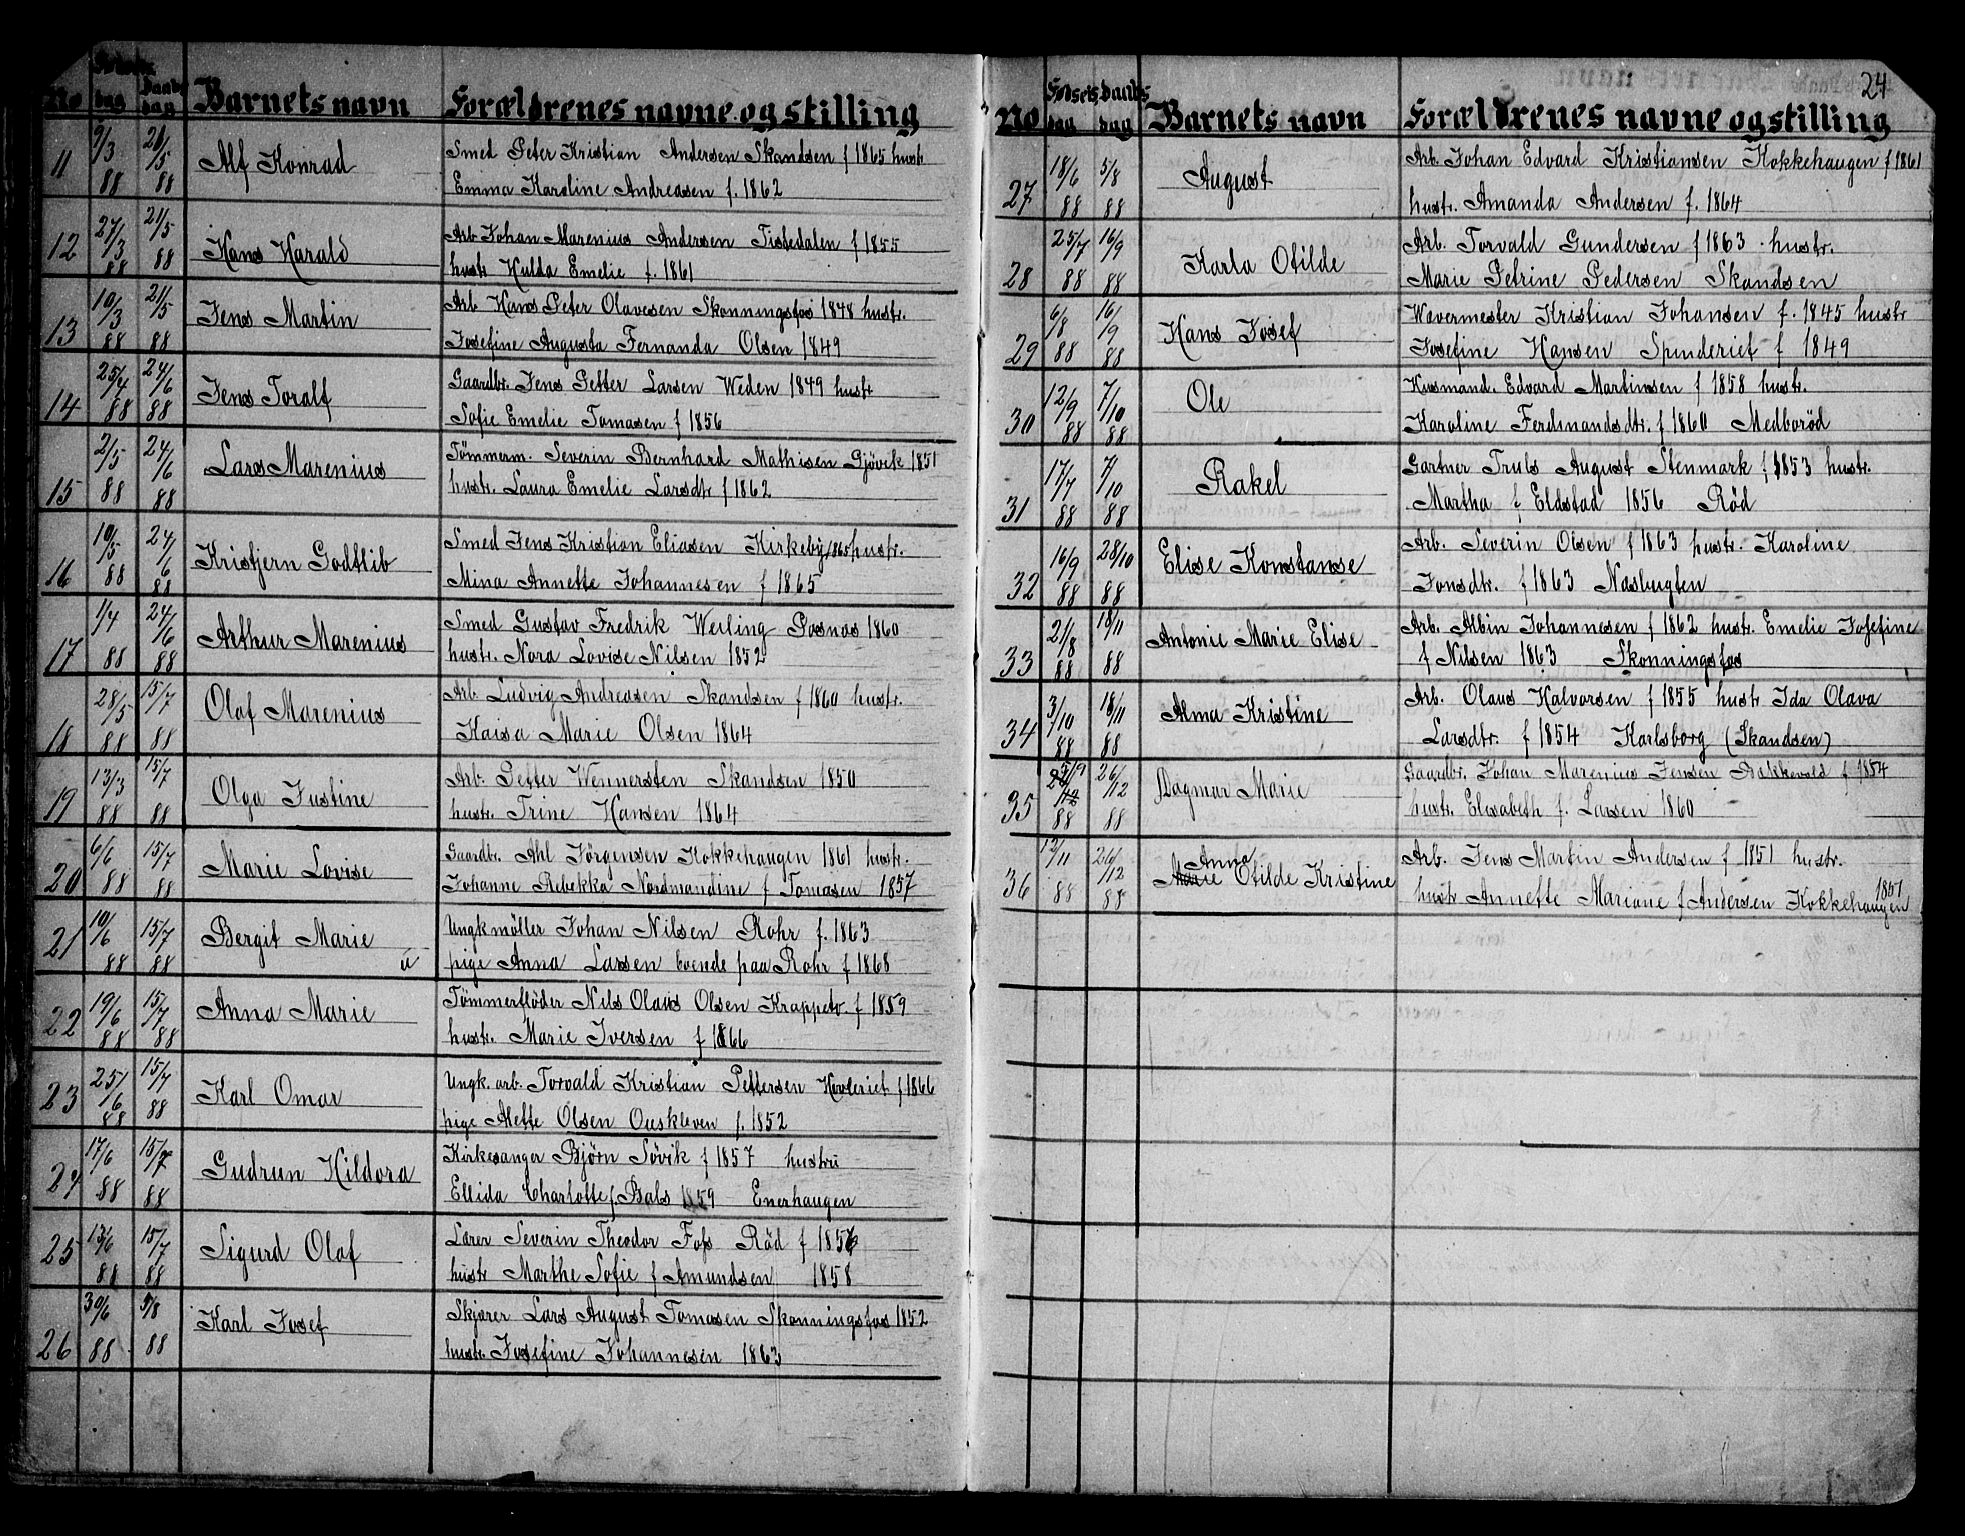 No Fødsels dag Daabs dag Barnets navn Forældrenes navne og stilling
11 9/3 88 21/5 88 Alf Konrad Smed Peter Kristian Andersen Skandsen f 1865 hustr.
Emma Karoline Andreasen f. 1862
12 27/3 88 21/5 88 Hans Harald Arb. Johan Marenius Andersen Tistedalen f 1855
hustr Hulda Emelie f. 1861
13 10/3 88 21/5 88 Jens Martin Arb Hans Peter Olavesen Skonningsfos 1848 hustr.
Josefine Augusta Fernanda Olsen 1849
14 25/4 88 24/6 88 Jens Toralf Gaardbr. Jens Petter Larsen Weden 1849 hustr
Sofie Emelie Tomasen f 1856
15 2/5 88 24/6 88 Lars Marenius Tömmerm. Severin Bernhard Mathisen Gjövik 1851
hustr. Laura Emelie Larsdtr f 1862
16 10/5 88 24/6 88 Kristjern Godtlib Smed Jens Kristian Eliasen Kirkeby 1865 hustr.
Mina Annette Johannesen f 1865
17 1/4 88 24/6 88 Arthur Marenius Smed Gustav Fredrik Werling Posnas 1860
hustr. Nora Lovise Nilsen 1852
18 28/5 88 15/7 88 Olaf Marenius Arb. Ludvig Andreasen Skandsen f 1860 hustr.
Kaisa Marie Olsen 1864
19 13/3 88 15/7 88 Olga Justine Arb. Petter Wennersten Skandsen 1850
hustr. Trine Hansen 1864
20 6/6 88 15/7 88 Marie Lovise Gaardbr. Ahl Jörgensen Kokkehaugen 1861 hustr.
Johanne Rebekka Nordmandine f Tomasen 1857
21 10/6 88 15/7 88 Bergit Marie u Ungk möller Johan Nilsen Rohr f. 1863
pige Anna Larsen boende paa Rohr f 1868
22 19/6 88 15/7 88 Anna Marie Tömmerflöder Nils Olaus Olsen Krappetr. f 1859
hustr. Marie Iversen f 1866
23 25/6 88 15/7 88 Karl Omar Ungk. arb. Torvald Kristian Pettersen Hovleriet f 1866
pige Alette Olsen Ouskleven f. 1852
24 17/6 88 15/7 88 Gudrun Hildora Kirkesanger Bjørn Søvik f 1857 hustru
Ellida Charlotte f. Bals 1859 Enerhaugen
25 13/6 88 15/7 88 Sigurd Olaf Lærer Severin Theodor Foss Rød f 1856
hustr Marthe Sofie f Amundsen 1858
26 30/6 88 5/8 88 Karl Josef Skjærer Lars August Tomasen Skonningsfos 1852
hustr. Josefine Johannesen 1863
24
No Fødsels dag daabs dag Barnets navn Forældrenes navne og stilling
27 18/6 88 5/8 88 August Arb. Johan Edvard Kristiansen Kokkehaugen f 1861
hustr. Amanda Andersen f. 1864
28 25/7 88 16/9 88 Karla Otilde Arb. Torvald Gundersen f 1863 hustr.
Marie Petrine Pedersen Skandsen
29 6/8 88 16/9 88 Hans Josef Wævermester Kristian Johansen f. 1845 hustr
Josefine Hansen Spinderiet f 1849
30 12/9 88 7/10 88 Ole Husmand. Edvard Martinsen f 1858 hustr.
Karoline Ferdinandsdtr. f 1860 Medborød
31 17/7 88 7/10 88 Rakel Gartner Truls August Stenmark f 1853 hustr.
Martha f Eldstad 1856 Rød
32 16/9 88 28/10 88 Elise Konstanse Arb. Severin Olsen f 1863 hustr. Karoline
Jonsdtr. f 1863 Nasbugten
33 21/8 88 18/11 88 Antonie Marie Elise Arb. Albin Johannesen f 1862 hustr. Emelie Josefine
f Nilsen 1863 Skonningsfos
34 3/10 88 18/11 88 Alma Kristine Arb. Olaus Halvorsen f 1855 hustr Ida Olava
Larsdtr. f 1854 Karlsborg (Skandsen)
35 88 26/12 88 Dagmar Marie Gaardbr. Johan Marenius Jensen Bakkevold f 1854
hustr. Elisabeth f. Larsen 1860
36 12/11 88 26/12 88 Anna Marie Otilde Kristine Arb. Jens Martin Andersen f 1851 hustr.
hustr Annette Mariane f Andersen Kokkehaugen 1851